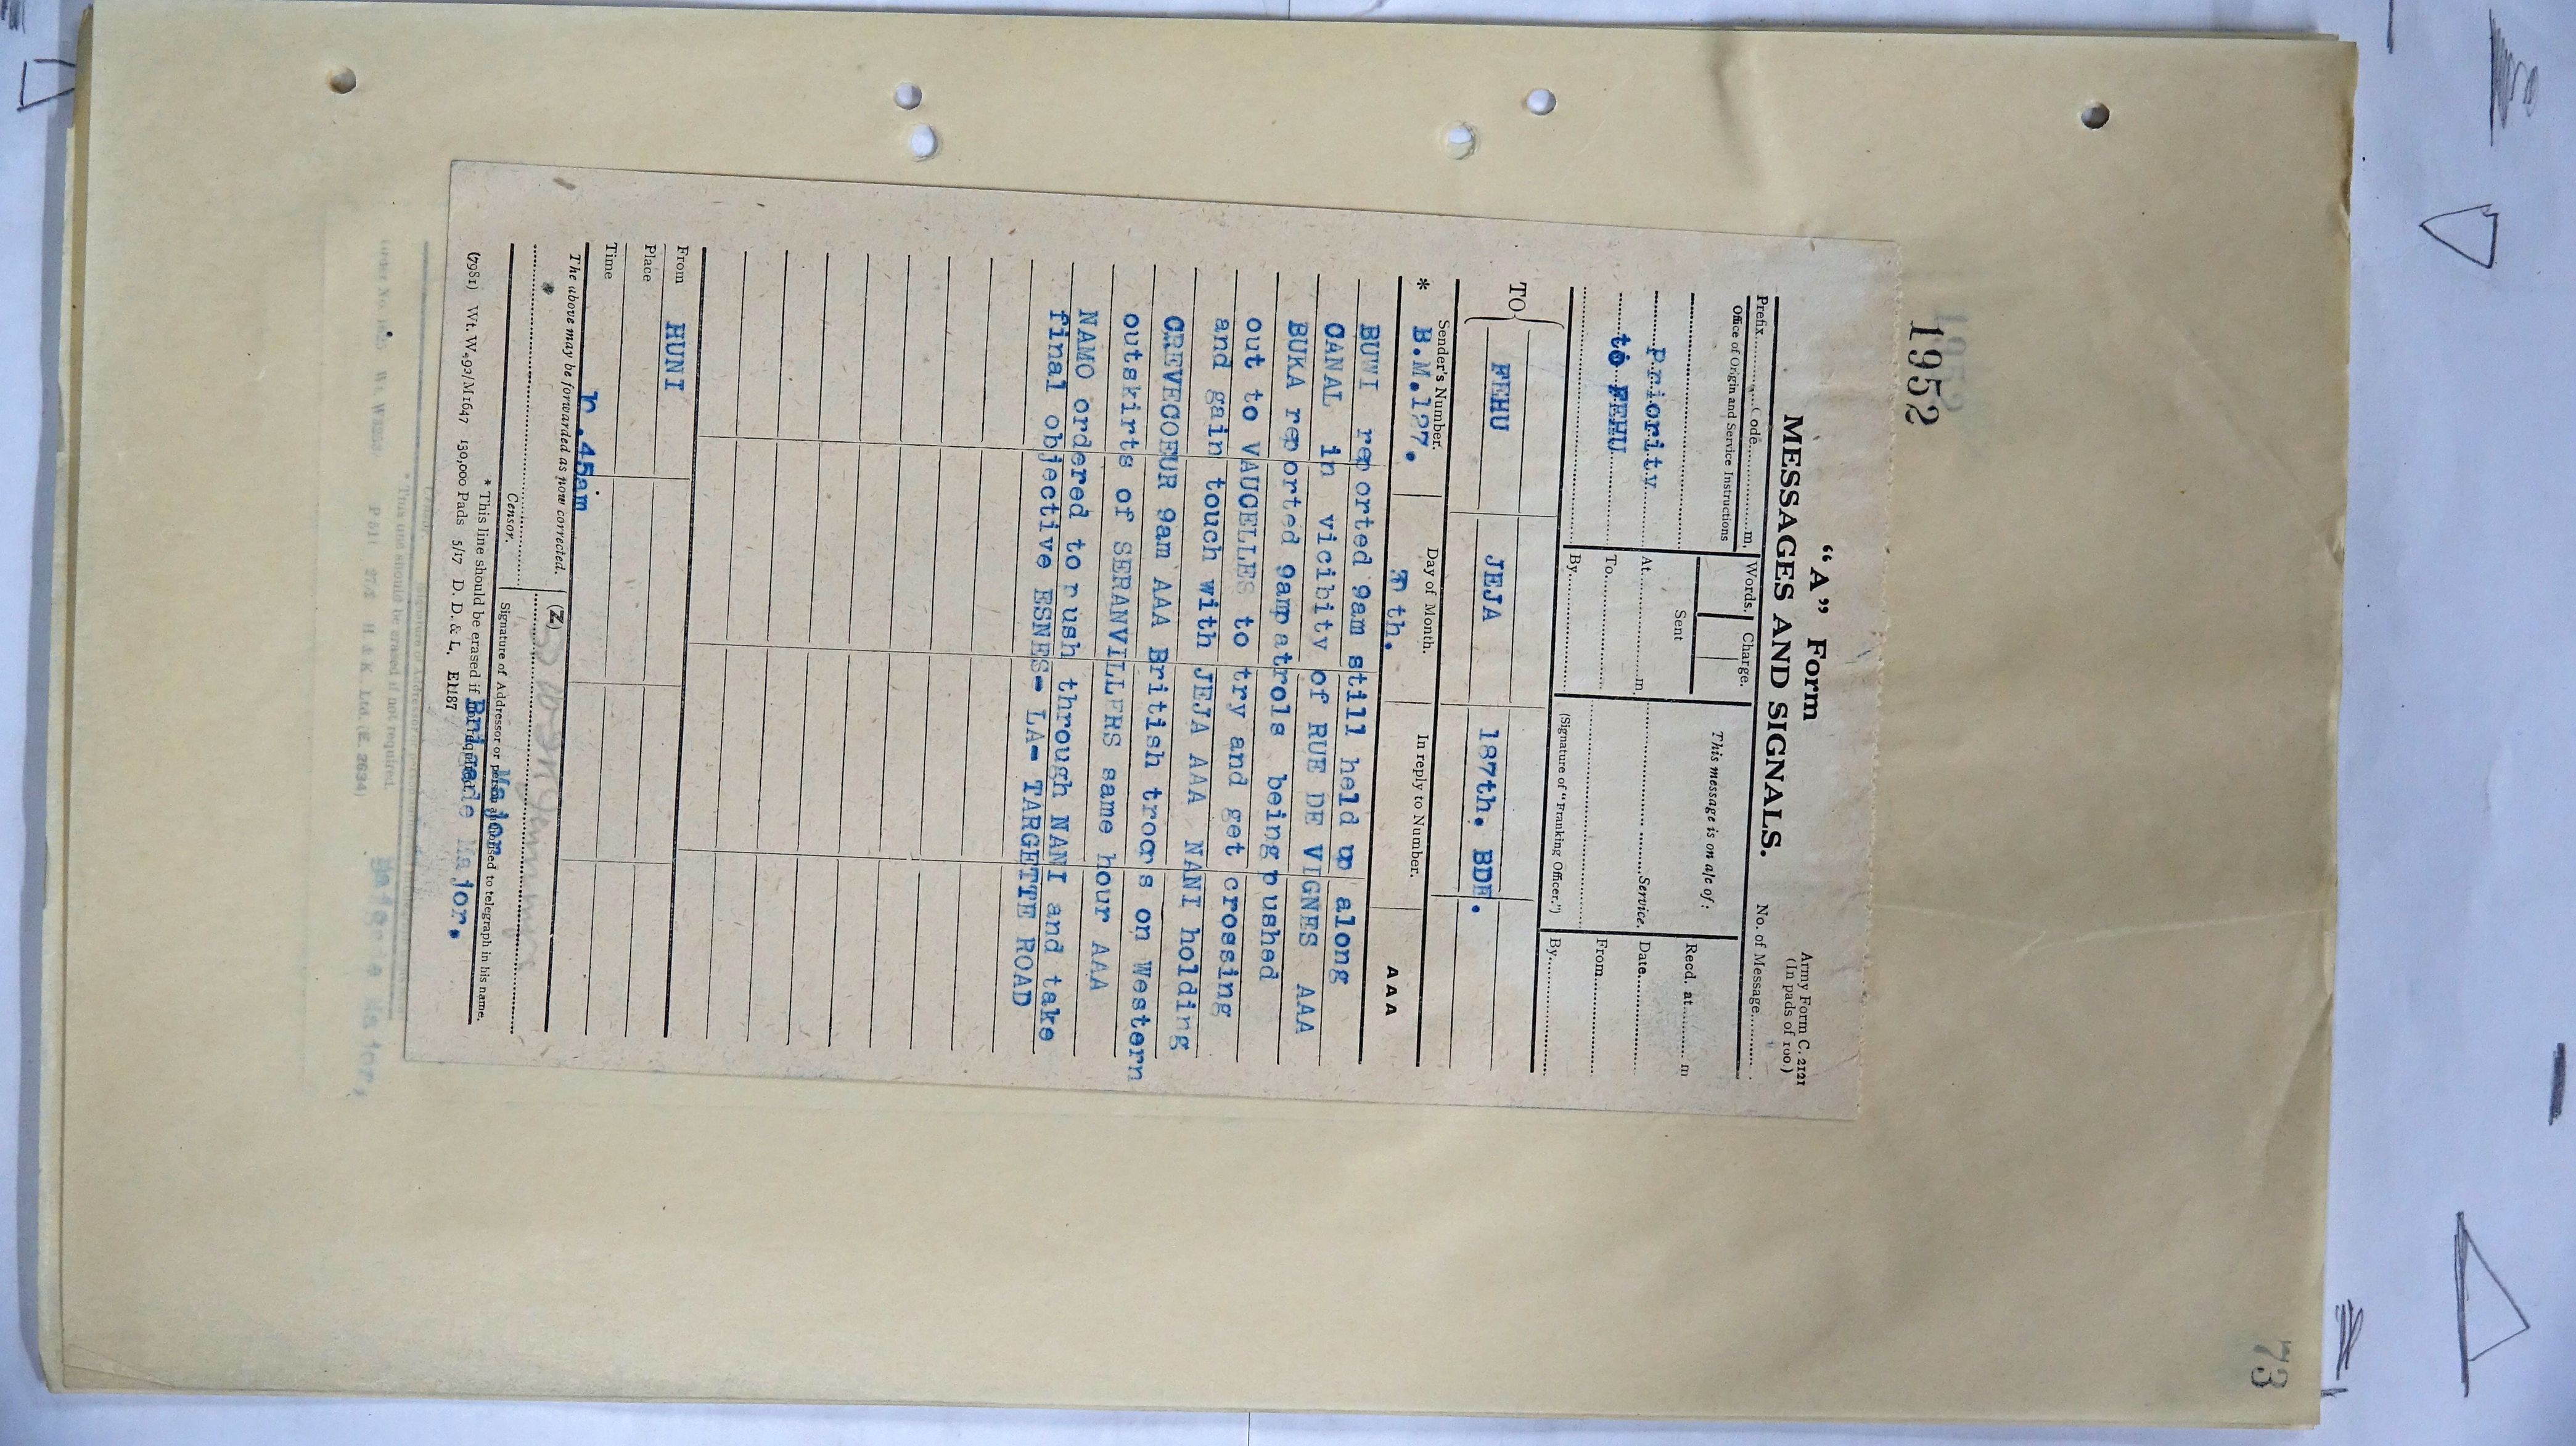 1952
73
"A" Form
MESSAGES AND SIGNALS.
Army Form C. 2121
(In pads of 100.)
No. of Message
Prefix Code m.
Words. Charge.
This message is on a/c of:
Recd. at m
Office of Origin and Service Instructions
Sent
Priority
At m.
Service.
Date
to FEHU
To
From
By
(Signature of "Franking Officer.")
By
TO FEHU JEJA 187th. BDE.
Sender's Number. Day of Month. In reply to Number.
* B.M.127. th. AAA
BUWI reported 9am still held up along
CANAL in vicibity of RUE DE VIGNES AAA
BUKA reported 9am patrols being pushed
out to VAUCELLES to try and get crossing
and gain touch with JEJA AAA NANI holding
CREVECOEUR 9am AAA British troops on Western
outskirts of SERANVILLERS same hour AAA
NAMO ordered to rush through NANI and take
final objective ESNES- LA- TARGETTE ROAD
From HUNI
Place
Time .45am
The above may be forwarded as now corrected. (Z)
Censor. Signature of Addressor or person authorised to telegraph in his name.
Major
* This line should be erased if not required.
Brigade Major.
(7981) Wt. W.92/M1647 130,000 Pads 5/17 D. D. & L. E1187
* This line should be erased if not required.
H & K. Ltd. (E. 2634)
Major,